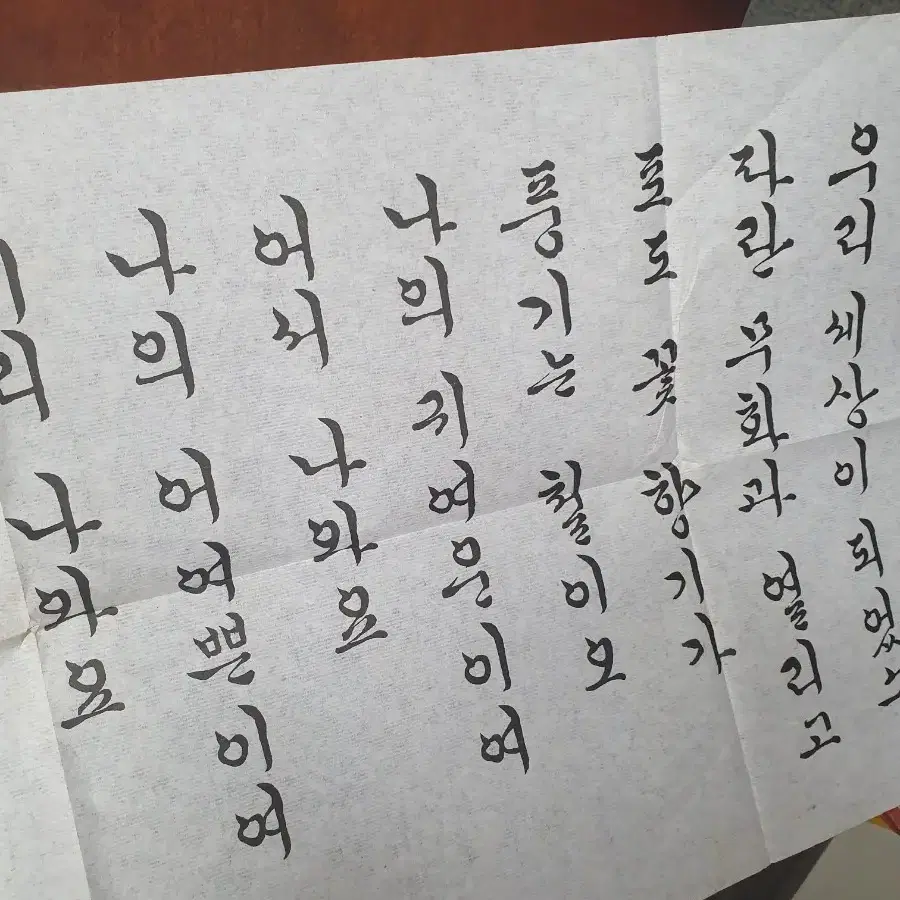 우리 세상이 되었
자란 무화과 열리고
포도 꽃 향기가
풍기는 철이오
나의 귀여운 이여
어서 나와요
나의 어여쁜 이여
리 나와요